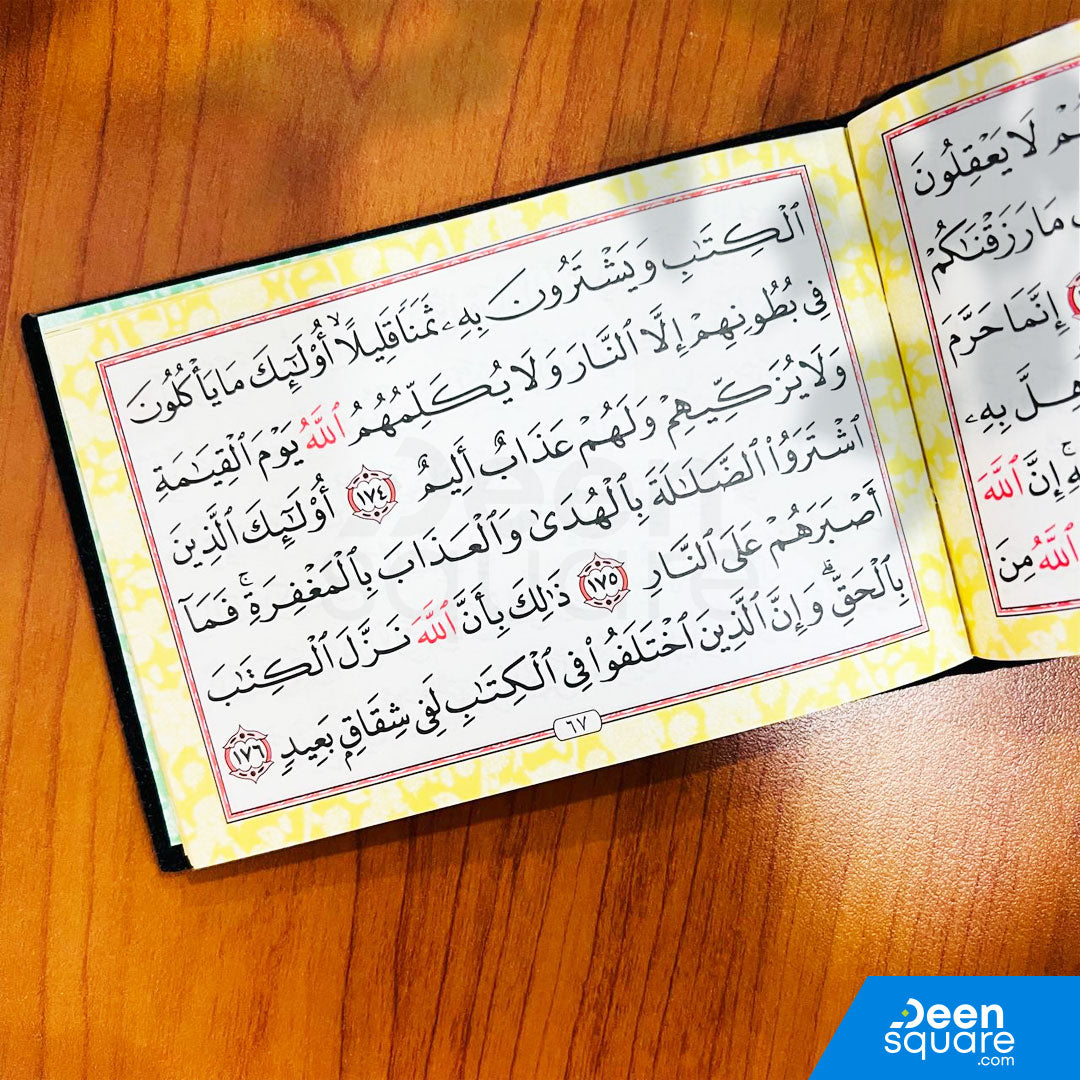 هُمْ لَا يَعْقِلُونَ
مَا رَزَقْنَاكُمْ
إِنَّمَا حَرَّمَ
بِهِۦ
إِنَّ ٱللَّهَ
ٱللَّهُ مِنَ
ٱلْكِتَٰبِ وَيَشْتَرُونَ بِهِۦ ثَمَنًا قَلِيلًا ۙ أُو۟لَٰٓئِكَ مَا يَأْكُلُونَ
فِى بُطُونِهِمْ إِلَّا ٱلنَّارَ وَلَا يُكَلِّمُهُمُ ٱللَّهُ يَوْمَ ٱلْقِيَٰمَةِ
وَلَا يُزَكِّيهِمْ وَلَهُمْ عَذَابٌ أَلِيمٌ ١٧٤ أُو۟لَٰٓئِكَ ٱلَّذِينَ
ٱشْتَرَوُا۟ ٱلضَّلَٰلَةَ بِٱلْهُدَىٰ وَٱلْعَذَابَ بِٱلْمَغْفِرَةِ ۚ فَمَآ
أَصْبَرَهُمْ عَلَى ٱلنَّارِ ١٧٥ ذَٰلِكَ بِأَنَّ ٱللَّهَ نَزَّلَ ٱلْكِتَٰبَ
بِٱلْحَقِّ ۗ وَإِنَّ ٱلَّذِينَ ٱخْتَلَفُوا۟ فِى ٱلْكِتَٰبِ لَفِى شِقَاقٍۭ بَعِيدٍ ١٧٦
٦٧
Deen
square
Deen
square
.com